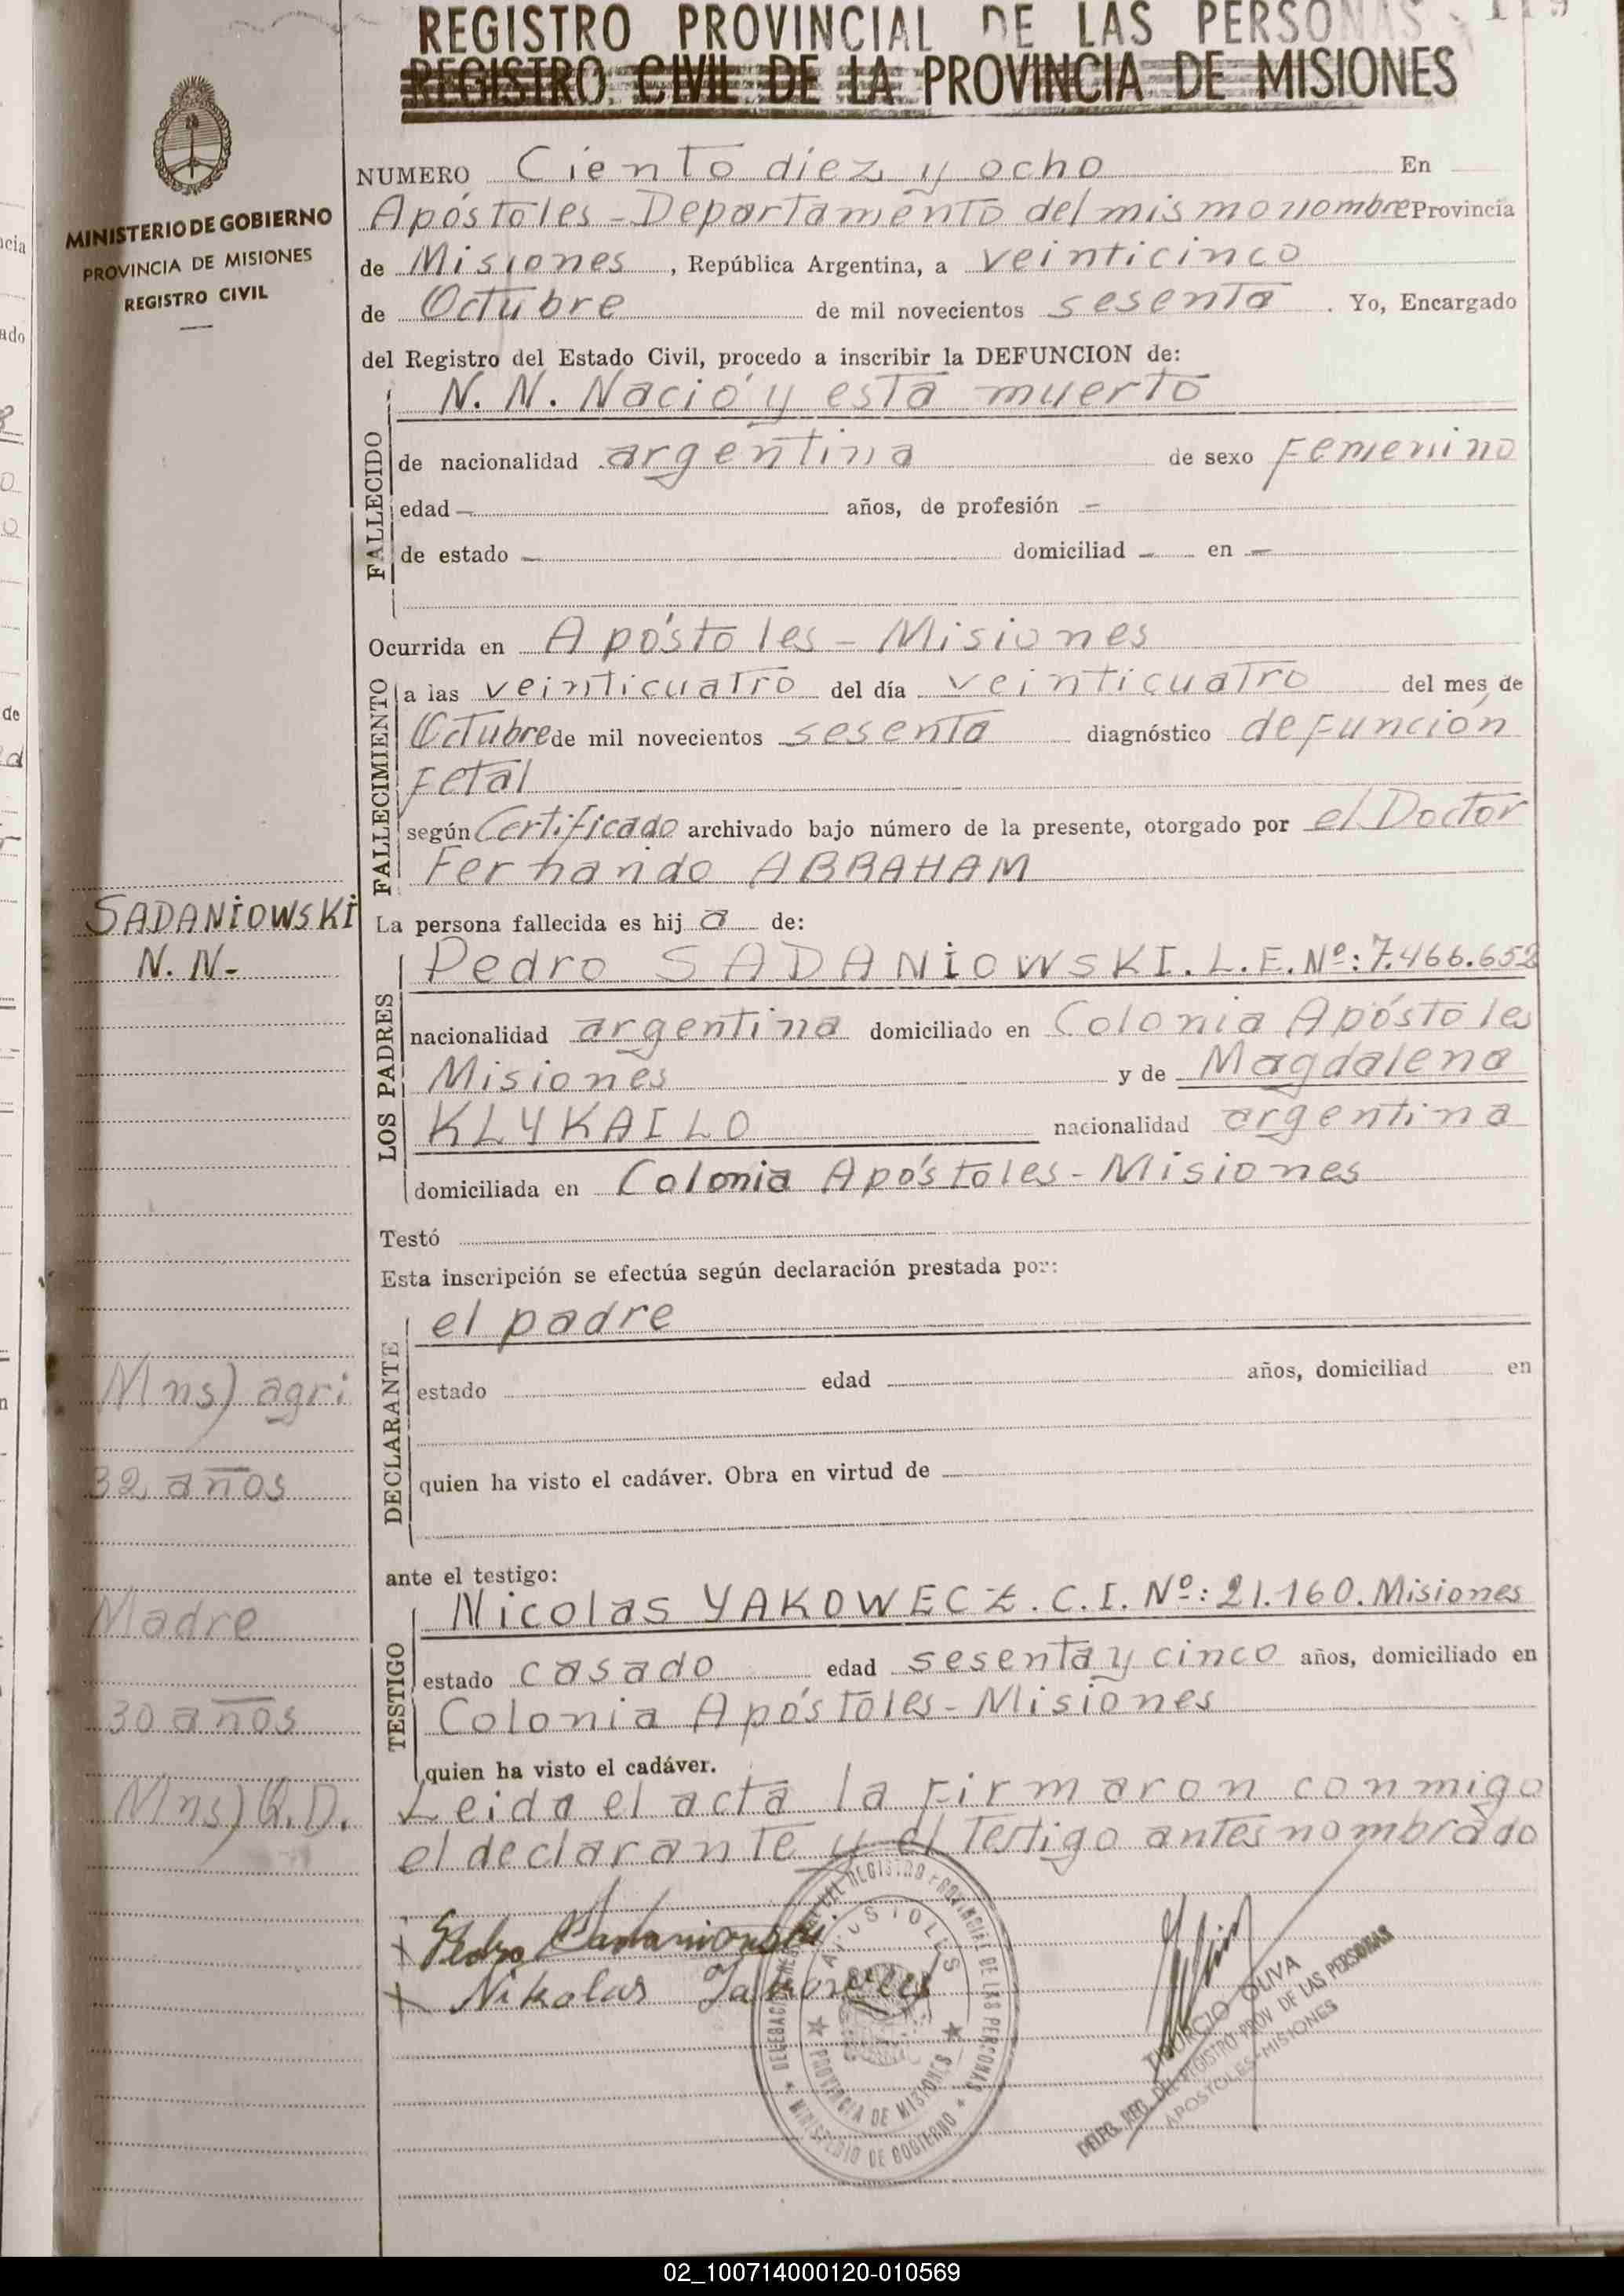 REGISTRO PROVINCIAL DE LAS PERSONAS
REGISTRO CIVIL DE LA PROVINCIA DE MISIONES
MINISTERIO DE GOBIERNO
PROVINCIA DE MISIONES
REGISTRO CIVIL
NUMERO Ciento diez y ocho En
Apóstoles - Departamento del mismo nombre Provincia
de Misiones, República Argentina, a veinticinco
de Octubre de mil novecientos sesenta. Yo, Encargado
del Registro del Estado Civil, procedo a inscribir la DEFUNCION de:
FALLECIDO
N. N. Nació y está muerto
de nacionalidad argentina de sexo Femenino
edad - años, de profesión -
de estado - domiciliad - en -
Ocurrida en Apóstoles - Misiones
FALLECIMIENTO
a las veinticuatro del día veinticuatro del mes de
Octubre de mil novecientos sesenta diagnóstico defunción
Fetal
según Certificado archivado bajo número de la presente, otorgado por el Doctor
Fernando ABRAHAM
SADANIOWSKI
N. N-
La persona fallecida es hija de:
LOS PADRES
Pedro SADANIOWSKI. L. E. Nº: 7.466.652
nacionalidad argentina domiciliado en Colonia Apóstoles
Misiones y de Magdalena
KLYKAILO nacionalidad argentina
domiciliada en Colonia Apóstoles - Misiones
Testó
Esta inscripción se efectúa según declaración prestada por:
DECLARANTE
el padre
estado edad años, domiciliad en
quien ha visto el cadáver. Obra en virtud de
Mns) agri
32 años
Madre
30 años
Mns) Q.D.
ante el testigo:
TESTIGO
Nicolas YAKOWECZ. C. I. Nº: 21.160. Misiones
estado casado edad sesenta y cinco años, domiciliado en
Colonia Apóstoles - Misiones
quien ha visto el cadáver.
Leida el acta la firmaron conmigo
el declarante y el Testigo antes nombrado
Pedro
Nikolas
APOSTOLES
PROVINCIA DE MISIONES
MINISTERIO DE GOBIERNO
TIBURCIO OLIVA
DELEG. REG. DEL REGISTRO PROV. DE LAS PERSONAS
APOSTOLES - MISIONES
02_100714000120-010569